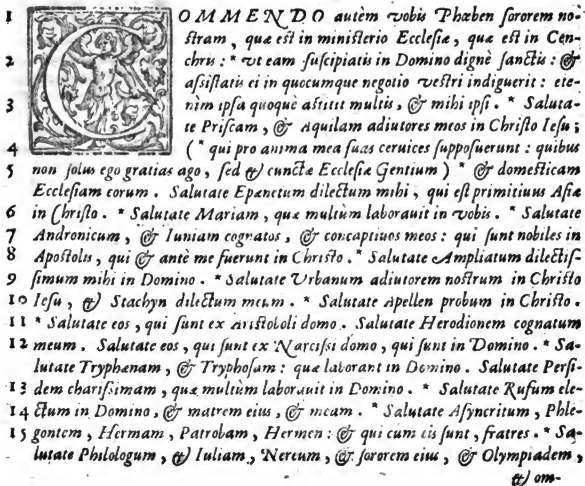 1 COMMENDO autèm vobis Phœben sororem no-
stram, quæ est in ministerio Ecclesiæ, quæ est in Cen-
2 chris: * vt eam suscipiatis in Domino dignè sanctis: &
assistatis ei in quocumque negotio vestri indiguerit: ete-
3 nim ipsa quoquè astitit multis, & mihi ipsi. * Saluta-
te Priscam, & Aquilam adiutores meos in Christo Iesu;
4 (* qui pro anima mea suas ceruices supposuerunt: quibus
5 non solus ego gratias ago, sed & cunctæ Ecclesiæ Gentium) * & domesticam
Ecclesiam eorum. Salutate Epænctum dilectum mihi, qui est primitiuus Asiæ
6 in Christo. * Salutate Mariam, quæ multùm laborauit in vobis. * Salutate
7 Andronicum, & Iuniam cognatos, & concaptiuos meos: qui sunt nobiles in
8 Apostolis, qui & antè me fuerunt in Christo. * Salutate Ampliatum dilectis-
9 simum mihi in Domino. * Salutate Vrbanum adiutorem nostrum in Christo
10 Iesu, & Stachyn dilectum meum. * Salutate Apellen probum in Christo.
11 * Salutate eos, qui sunt ex Aristoboli domo. Salutate Herodionem cognatum
12 meum. Salutate eos, qui sunt ex Narcissi domo, qui sunt in Domino. * Sa-
lutate Tryphænam, & Tryphosam: quæ laborant in Domino. Salutate Persi-
13 dem charissimam, quæ multùm laborauit in Domino. * Salutate Rufum ele-
14 ctum in Domino, & matrem eius, & meam. * Salutate Asyncritum, Phle-
15 gontem, Hermam, Patrobam, Hermen: & qui cum eis sunt, fratres. * Sa-
lutate Philologum, & Iuliam, Nereum, & sororem eius, & Olympiadem,
& om-